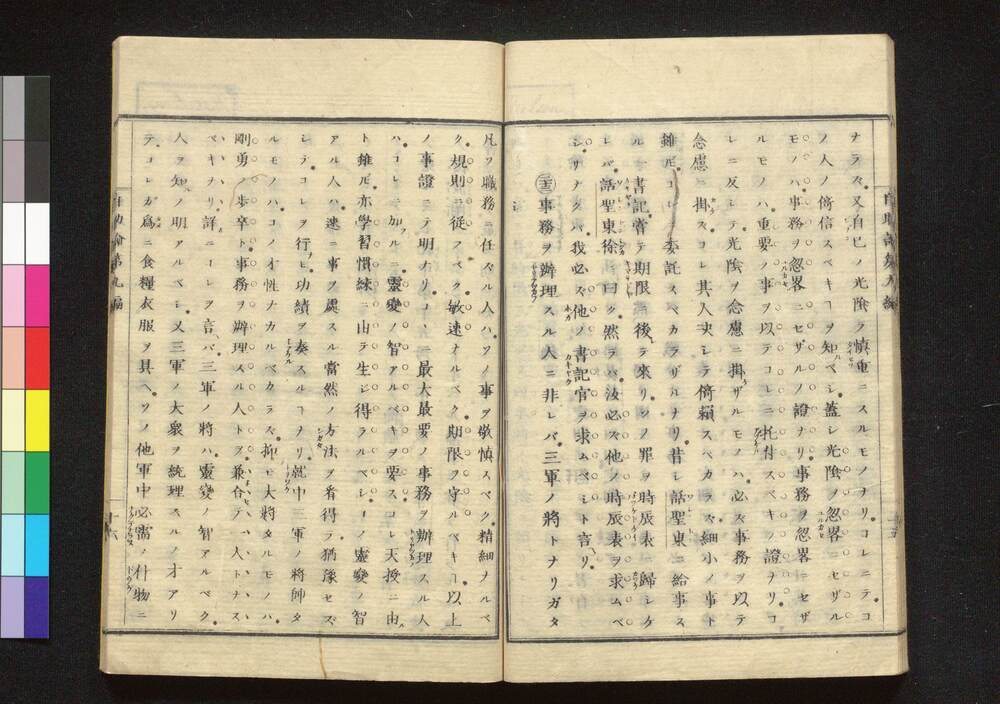 ナラズ又自巳ノ光陰ヲ慎重ニスルモノナリコレニテコ
ノ人ノ倚信スベキヿヲ知ルベシ蓋シ光陰ノ忽畧ニセザル
モノハ事務ヲ忽畧ニセザルノ證ナリ事務ヲ忽畧ニセザ
ルモノハ重要ノ事ヲ以テコレニ托付スベキノ證ナリコ
レニ反シテ光陰ヲ念慮ニ掛ザルモノハ必ズ事務ヲ以テ
念慮ニ掛ズコレ其人决シテ倚頼スベカラズ細小ノ事ト
雖𪜈コレニ委託スベカラザルナリ昔シ話聖東ニ給事ス
ル書記嘗テ期限ニ後レテ來リソノ罪ヲ時辰表ニ歸シケ
レバ話聖東徐ニ曰ク然ラバ汝必ズ他ノ時辰表ヲ求ムベ
シサナクバ我必ズ他ノ書記官ヲ求ムベシト言リ
㊁事務ヲ辦理スル人ニ非レバ三軍ノ將トナリガタ
シ
凡ソ職務ニ任ズル人ハソノ事ヲ敬慎スベク精細ナルベ
ク規則ニ從フベク敏速ナルベク期限ヲ守ルベキヿ以上
ノ事證ニテ明ナリコヽニ最大最要ノ事務ヲ辦理スル人
ハコレニ加ルニ靈變ノ智アルベキヲ要スコレ天授ニ由
ト雖𪜈亦學習慣練ニ由テ生ジ得ラルベシコノ靈變ノ智
アル人ハ速ニ事ヲ處スル當然ノ方法ヲ看得テ猶豫セズ
シテコレヲ行ヒ功績ヲ奏スルヿナリ就中三軍ノ將帥タ
ルモノハコノオ性ナカルベカラズ抑モ大將タルモノハ
剛勇ノ歩卒ト事務ヲ辦理スル人トヲ兼合テ一人トナス
ベキナリ詳ニコレヲ言バ三軍ノ將ハ靈變ノ智アルベク
人ヲ知ノ明アルベシ又三軍ノ大衆ヲ統理スルノ才アリ
テコレガ爲ニ食糧衣服ヲ具ヘソノ他軍中必需ノ什物ニ